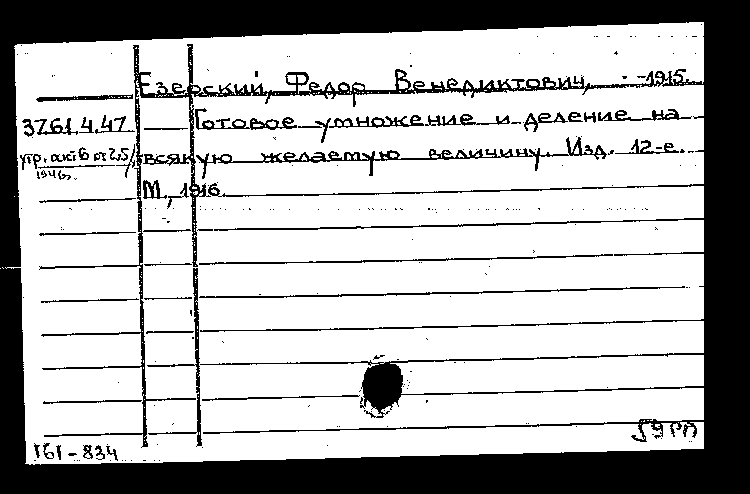 Езерский, Федор Венедиктович, - -1915.
3761.4.47 Готовое умножение и деление на
утр. акт 6 от 25/ всякую желаемую величину. Изд. 12-е.
М., 1916.
161-834
59 РП